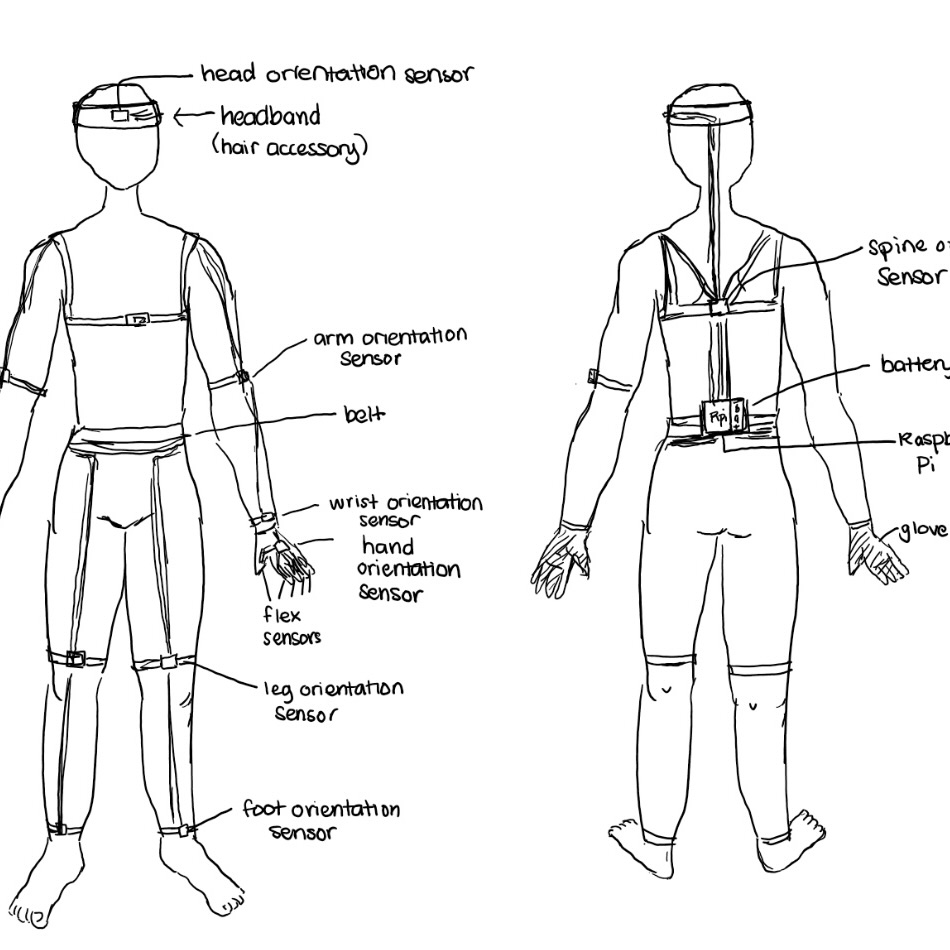 head orientation sensor
headband
(hair accessory)
arm orientation
sensor
belt
wrist orientation
sensor
hand
orientation
sensor
flex
sensors
leg orientation
sensor
foot orientation
sensor
spine
sensor
battery
Rpi
Pi
glove